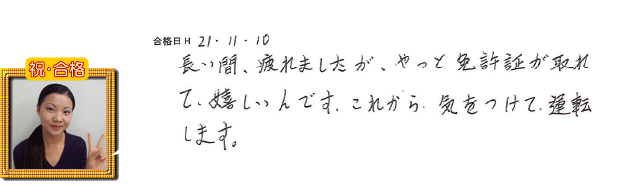 合格日H 21・11・10
祝・合格
長い間、疲れましたが、やっと免許証が取れ
て、嬉しいんです、これから、気をつけて、運転
します。